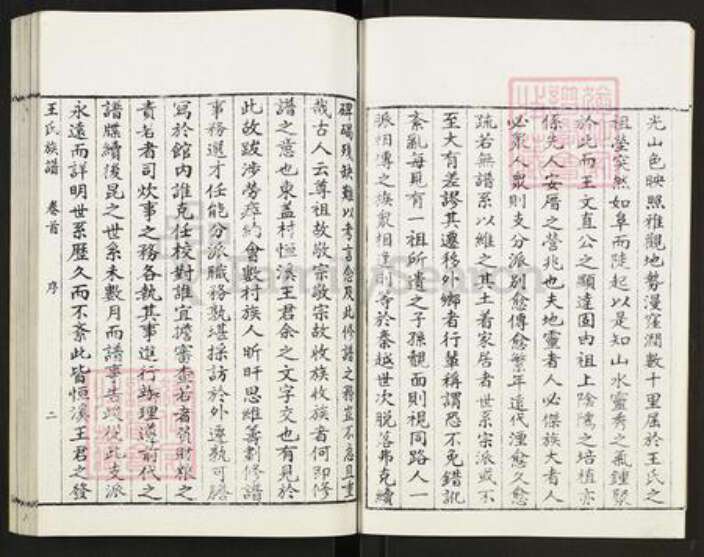 光山色映照雅觀地勢漫窪濶數十里屬於王氏之
祖塋突然如阜而陡起以是知山水靈秀之氣鍾聚
於此而王文直公之顯達固由祖上陰隲之培植亦
係先人安厝之營兆也夫地靈者人必傑族大者人
必眾人眾則支分派別愈傳愈繁年遠代湮愈久愈
疏若無譜系以維之其土着家居者世系宗派或不
至大有差謬其遷移外鄉者行輩稱謂恐不免錯訛
紊亂每見有一祖所遺之子孫覿面則視同路人一
派相傳之族眾相逢則等於秦越世次脫落弗克續
碑碣殘缺難以考言念及此修譜之舉豈不急且重
哉古人云尊祖故敬宗敬宗故收族收族者何即修
譜之意也東盖村恒溪王君余之文字交也有見於
此故跋涉勞瘁約會數村族人昕旰思維籌劃修譜
事務選才任能分派職務孰堪採訪於外遷孰可謄
寫於館內誰克任校對誰宜擔審查若者貲財粮之
責若者司炊事之務各執其事進行辦理遵前代之
譜牒續後昆之世系未數月而譜事告竣從此支派
永遠而詳明世系歷久而不紊此皆恒溪王君之發
王氏族譜 卷首 序 二
FamilySearch